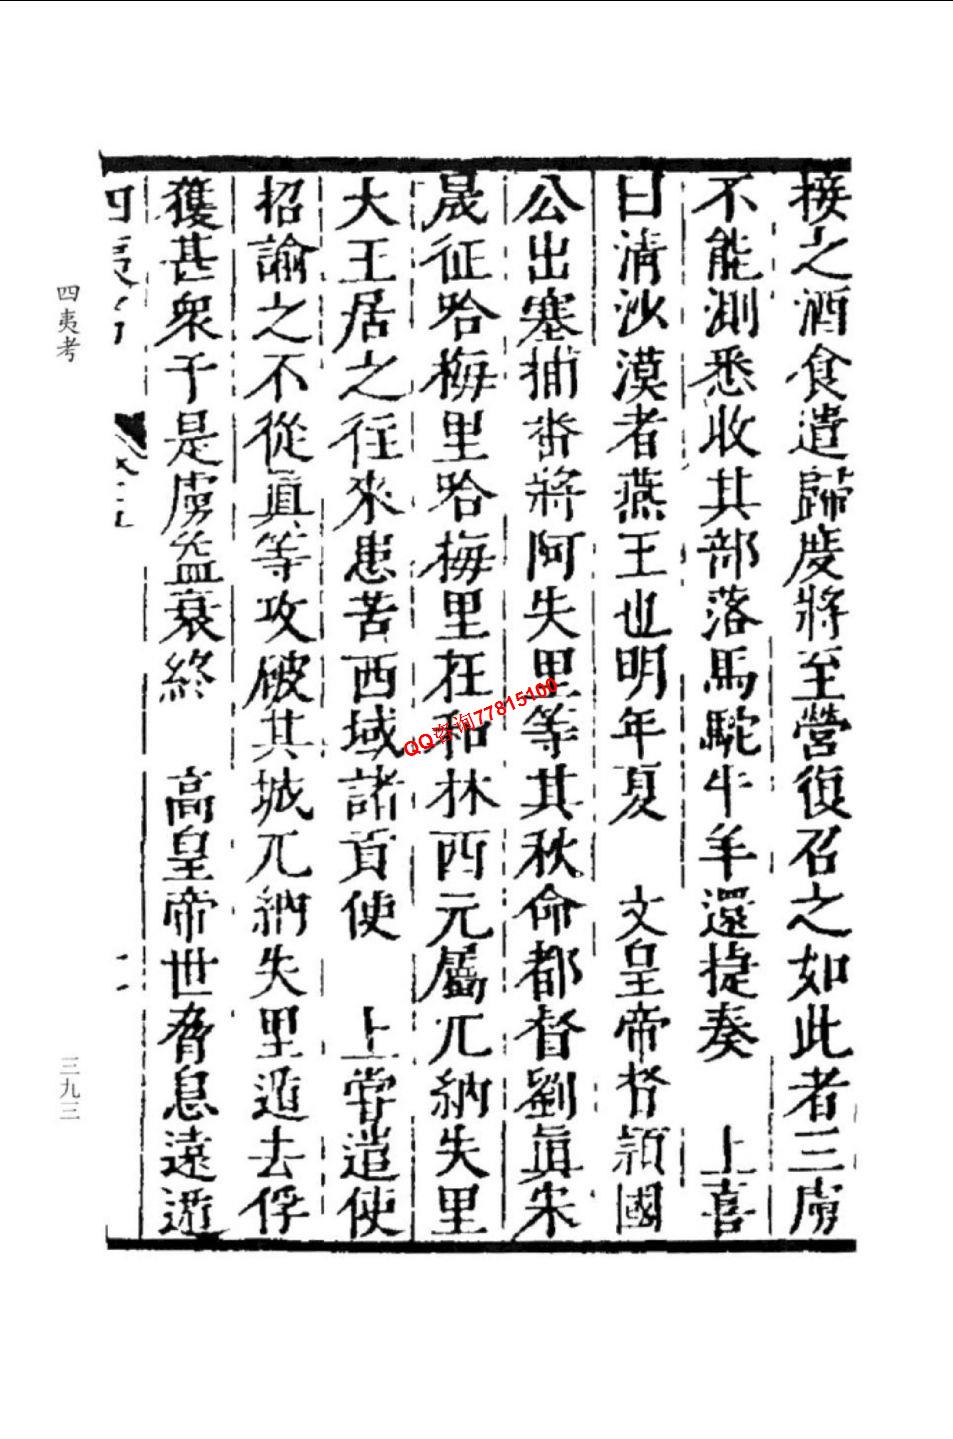 接之酒食遣歸度將至營復召之如此者三虜
不能測悉收其部落馬駝牛羊還捷奏 上喜
曰淸沙漠者燕王也明年夏 文皇帝督潁國
公出塞捕畨將阿失里等其秋命都督劉眞宋
晟征哈梅里哈梅里在和林西元屬兀納失里
大王居之往來患苦西域諸貢使 上嘗遣使
招諭之不從眞等攻破其城兀納失里遁去俘
獲甚衆于是虜益衰終 高皇帝世脅息遠遁
四夷考
四夷考
三九三
QQ咨询77815100